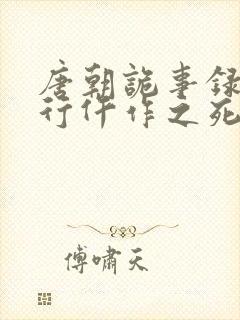 唐朝詭事録
行仵作之死
傅嘯天